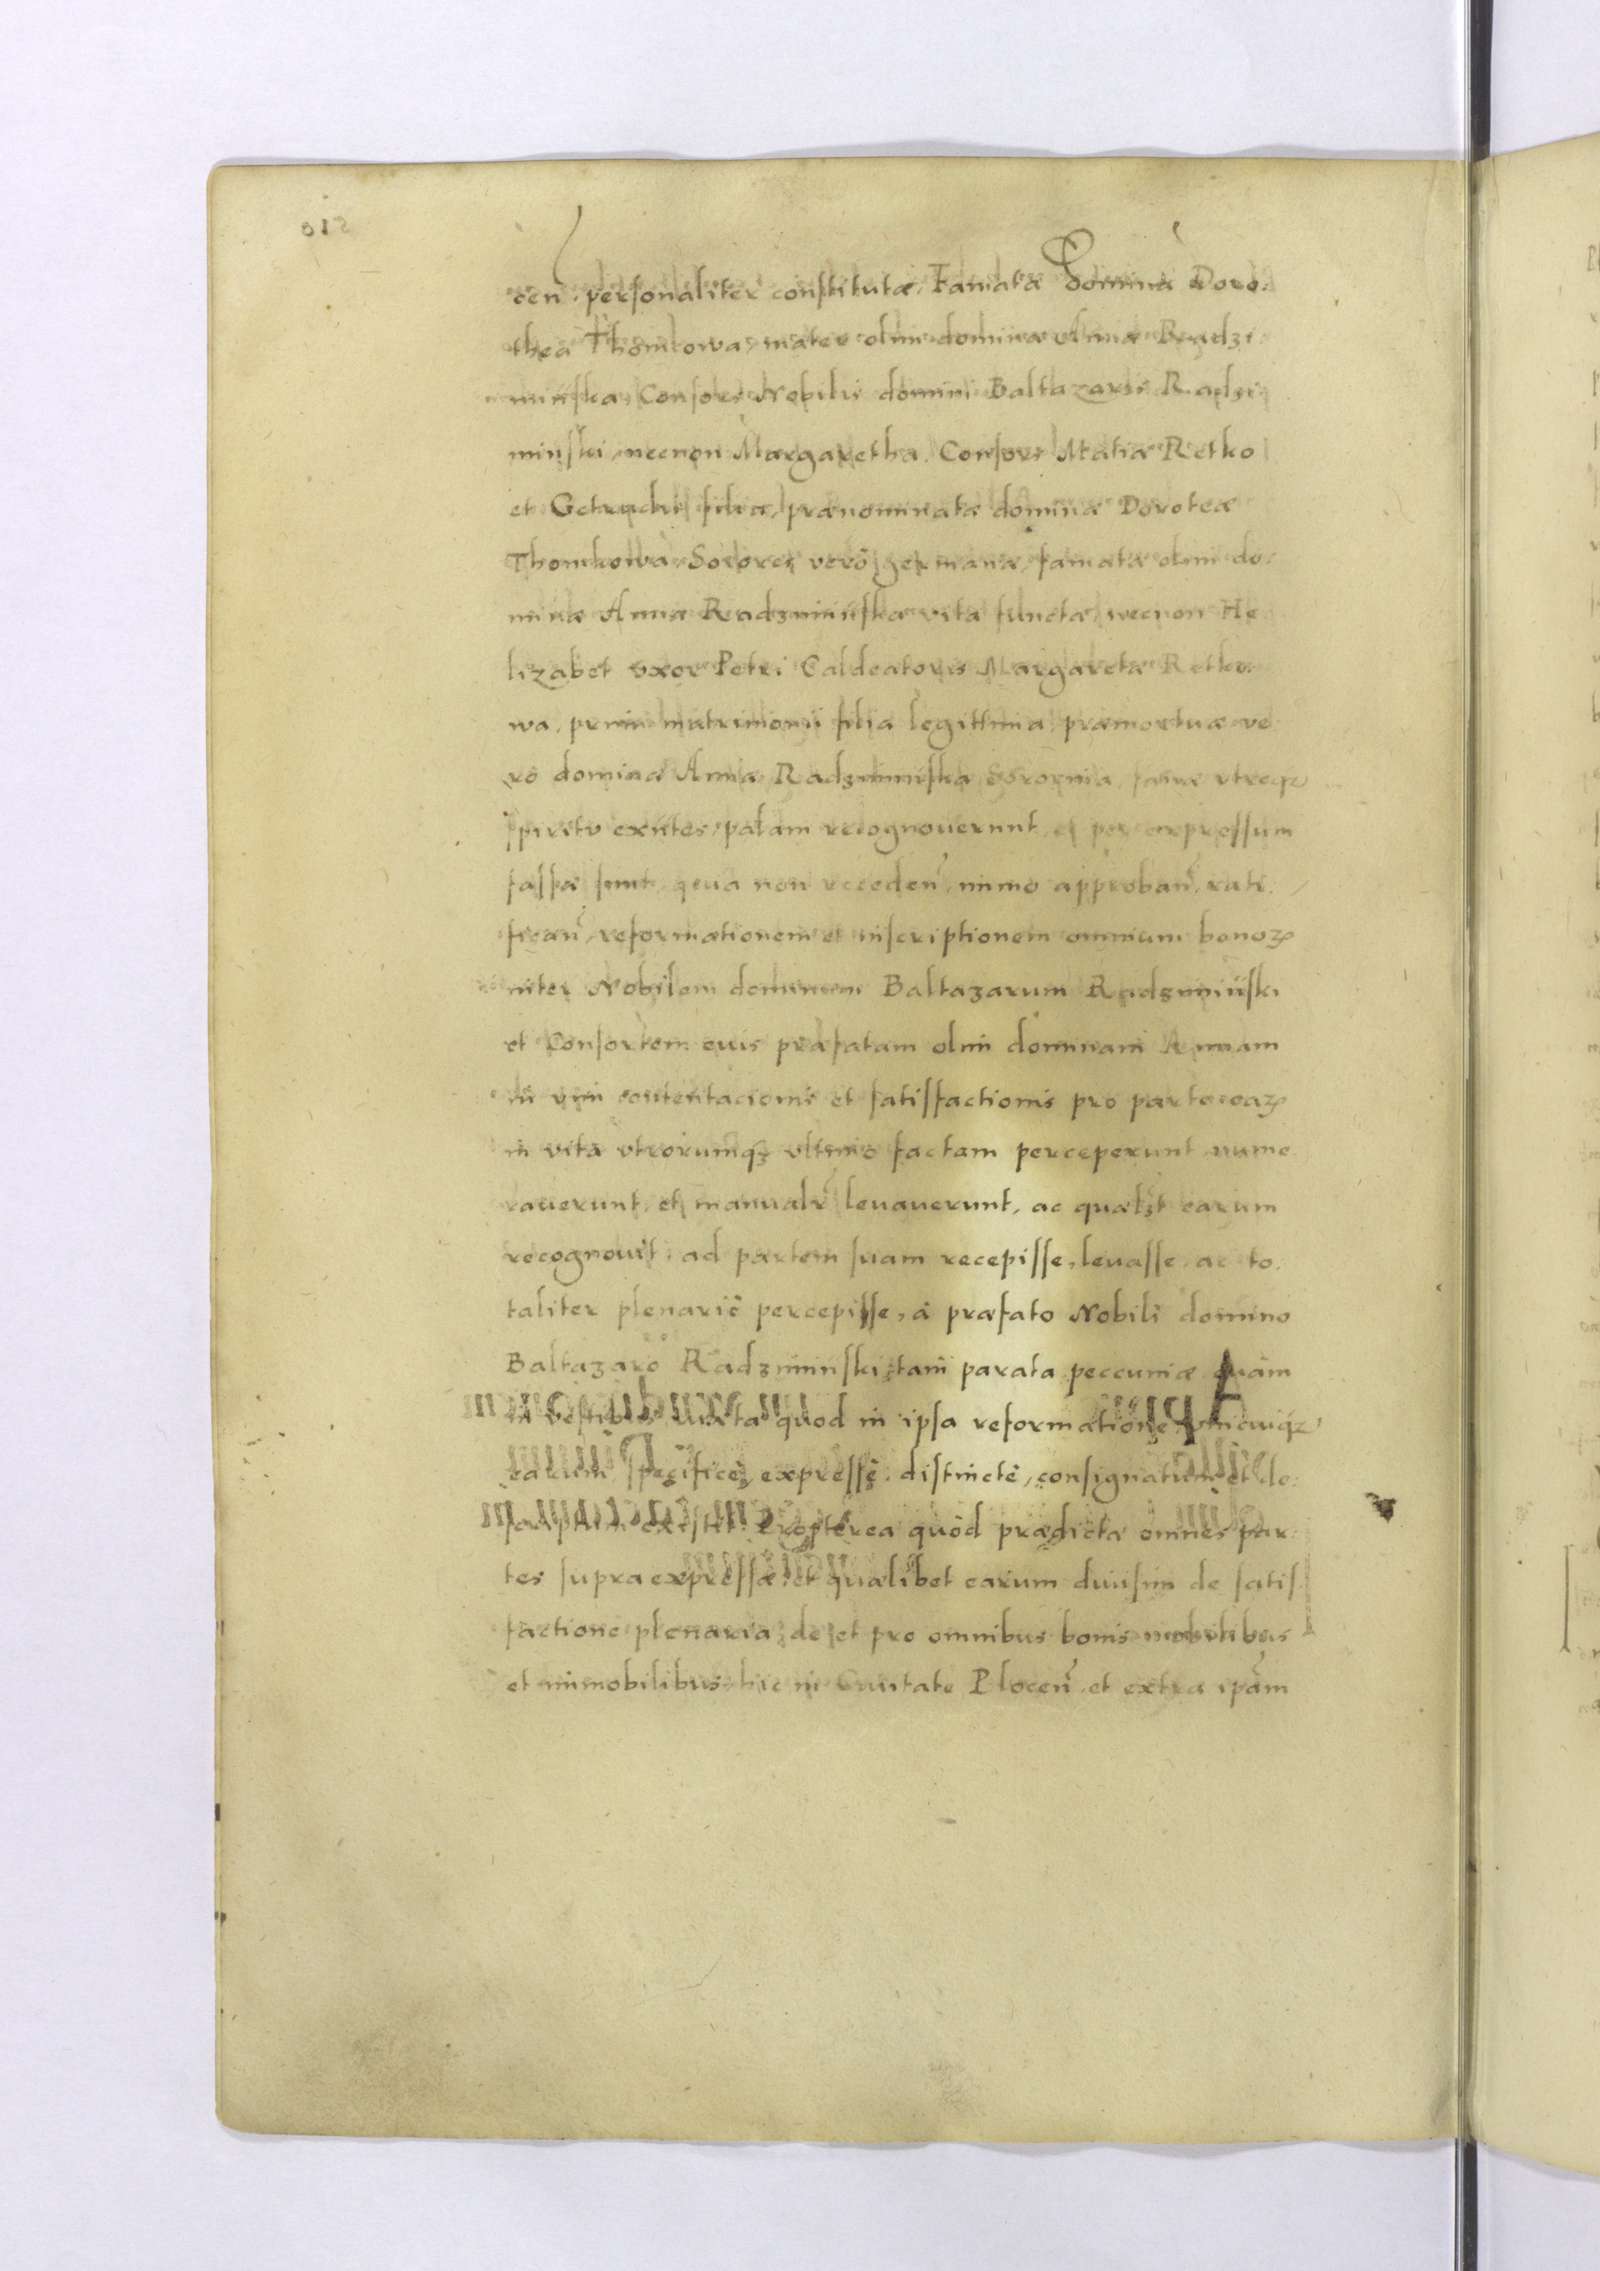 cen̄. personaliter constitutæ, Famata Domina Doro-
thea Thomkowa, mater olim dominæ Annæ Radzi
miiſka, Conſors Nobilis domini Baltazaris Radzi
minſki, necnon Margaretha, Conſors Matiæ Retko
et Getrudis filia, prænominatæ dominæ Doroteæ
Thomkowa, Sorores verò germanæ, famatæ olim do-
minæ Annæ Radzimiiſka vita functæ, necnon He
lizabet vxor Petri Caldeatoris Margaretæ Retko-
wa, primi matrimonii filia legittima, præmortuæ ve
rò dominæ Annæ Radzimiiſka Sorornia, sanæ vtreqȝ
ſpiritu exn̄tes, palam recognouerunt, et per expreſſum
faſſæ ſunt, qeua non receden̄, immo approban̄, rati
fican̄, reformationem et inſcriptionem omnium bonoꝝ
inter Nobilem dominum Baltazarum Radzimiiſki
et Conſortem euis præfatam olim dominam Annam
in vim contentacionis et ſatiſfactionis pro parte eaꝝ
in vita vtrorumqȝ vltimo factam perceperunt nume
rauerunt, et manualr̄ leuauerunt, ac quælȝt earum
recognouit, ad partem ſuam recepiſſe, leuaſſe, ac to-
taliter plenariè percepiſſe, à præfato Nobili domino
Baltazaro Radziminſki, tam parata peccuniæ quàm
in veſtibus iuxta quod in ipſa reformatione vnicuiqȝ
earum, ſpecificè, expreſſè, diſtinctè, conſignatum et de-
existit. Propterea quòd prædictæ omnes par-
tes ſupra expreſſæ, et quælibet earum diuiſim de ſatiſ-
factione plenaria, de et pro omnibus bonis mobilibus
et immobilibus, hic in Ciuitate Plocen̄. et extra ip̄am